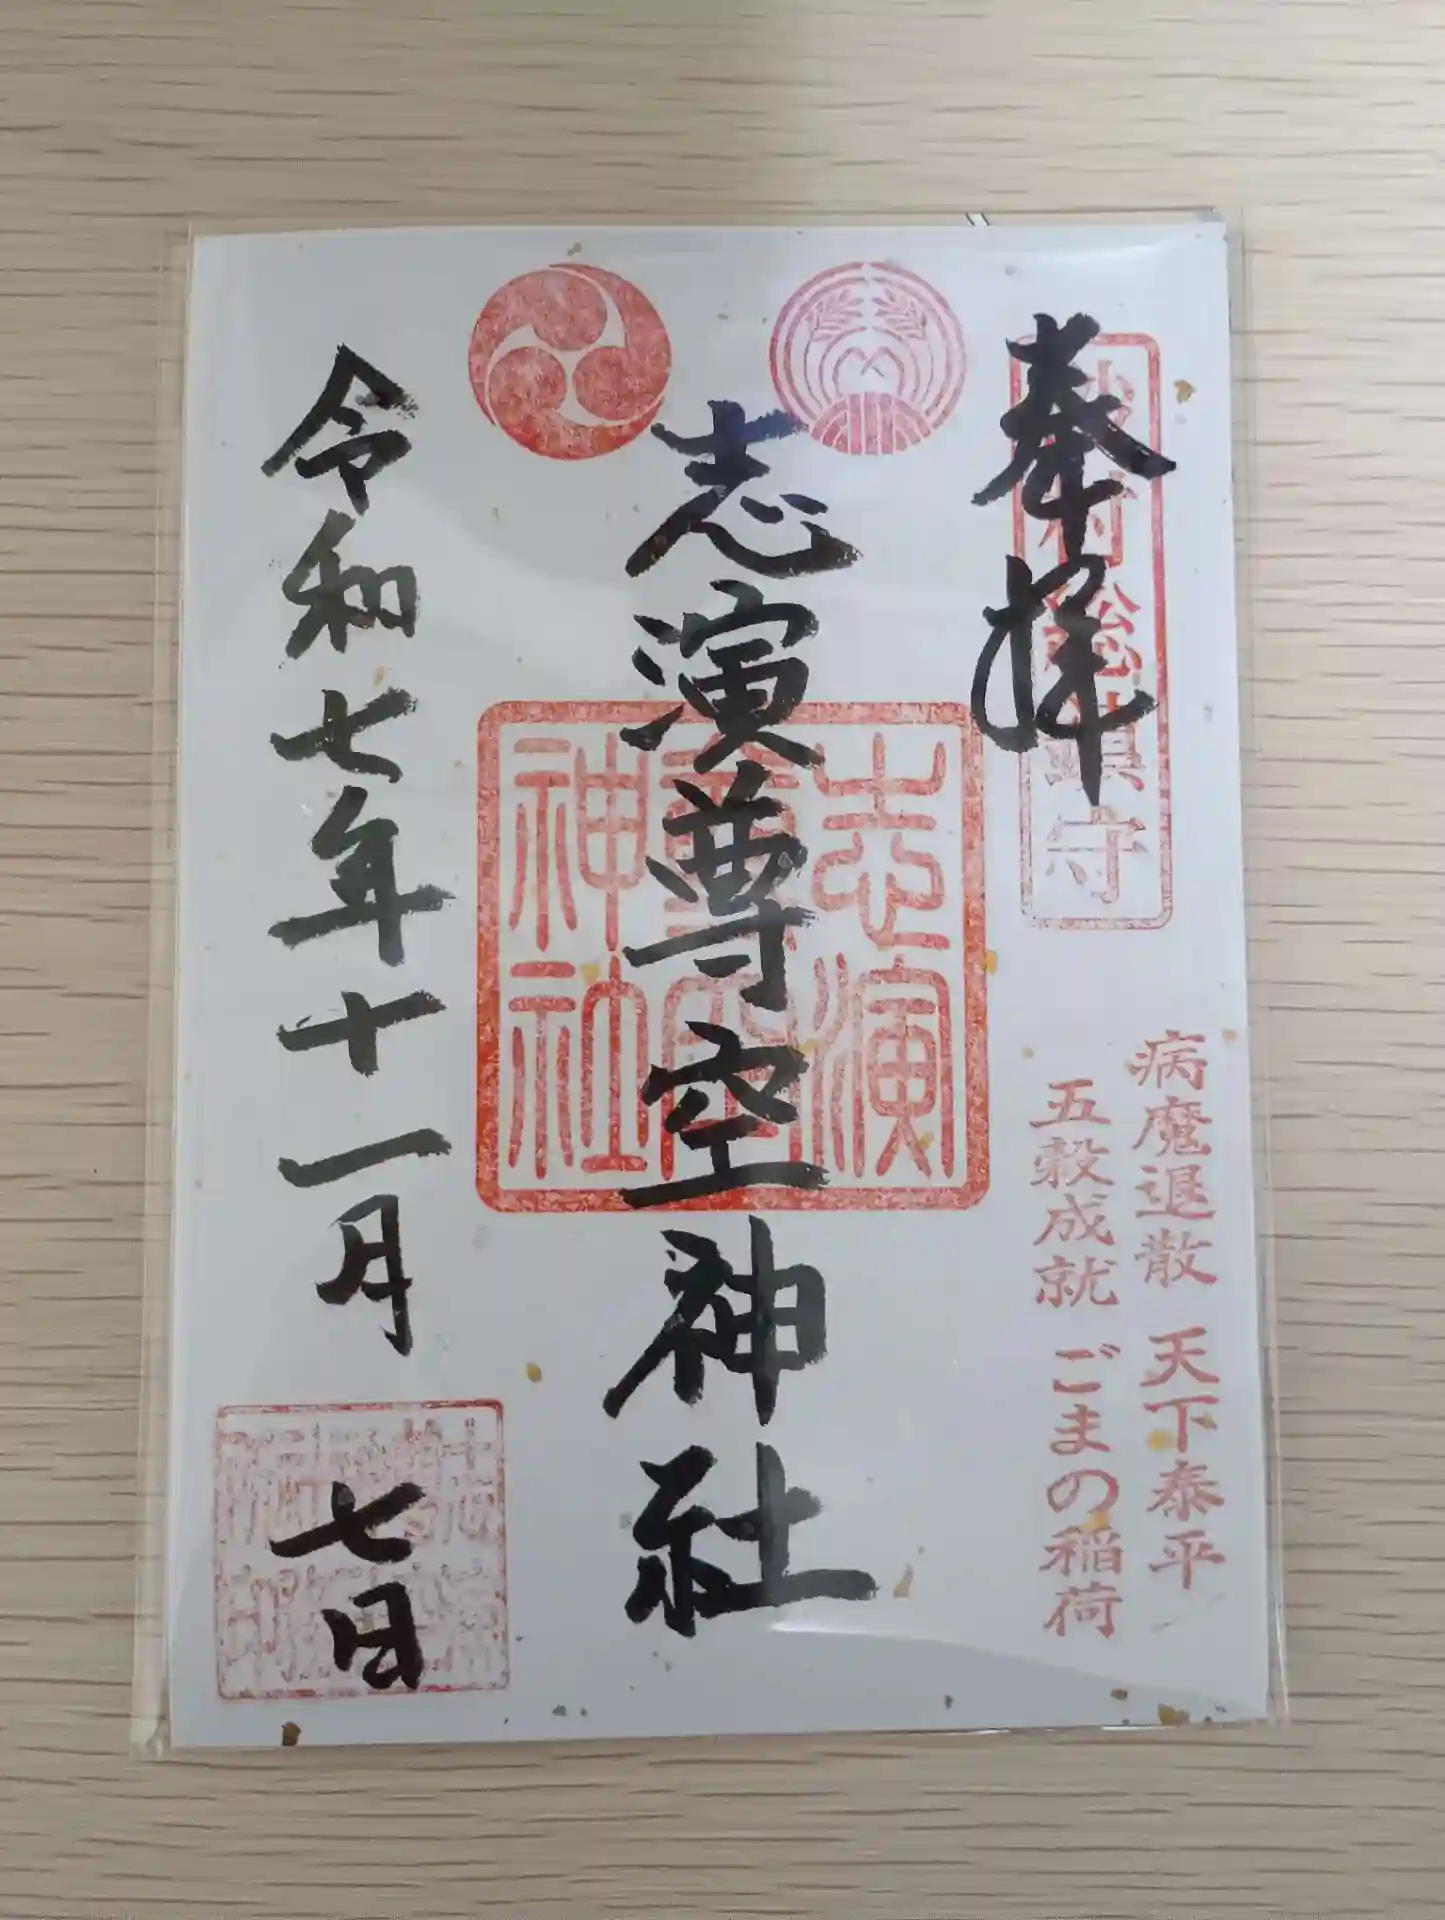 奉拝
総鎮守
病魔退散 天下泰平
五穀成就 ごまの稲荷
志演尊空神社
志演
尊空
神社
令和七年十一月 七日